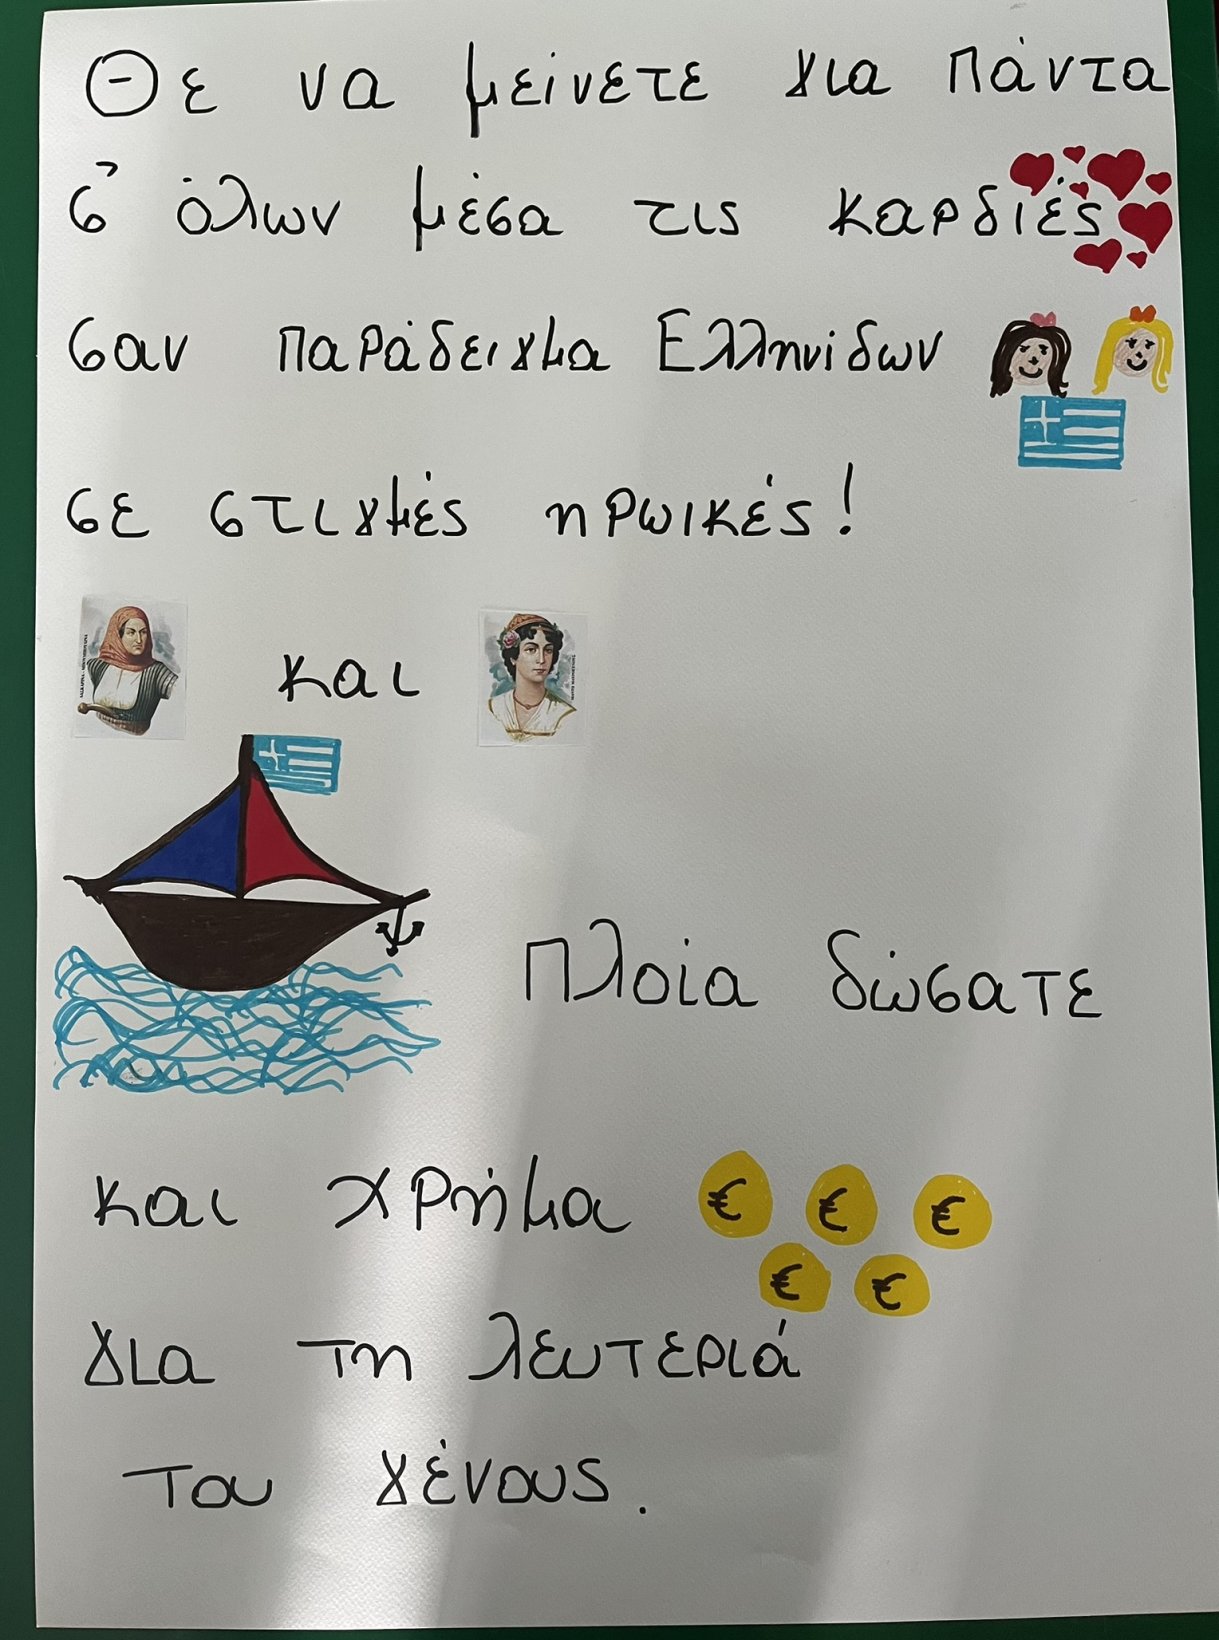 Θε να μείνετε για πάντα
σ' όλων μέσα τις καρδιές
σαν παράδειγμα Ελληνίδων
σε στιγμές ηρωικές!
και
Πλοία δώσατε
και χρήμα
€ € €
€ €
για τη λευτεριά
του γένους.